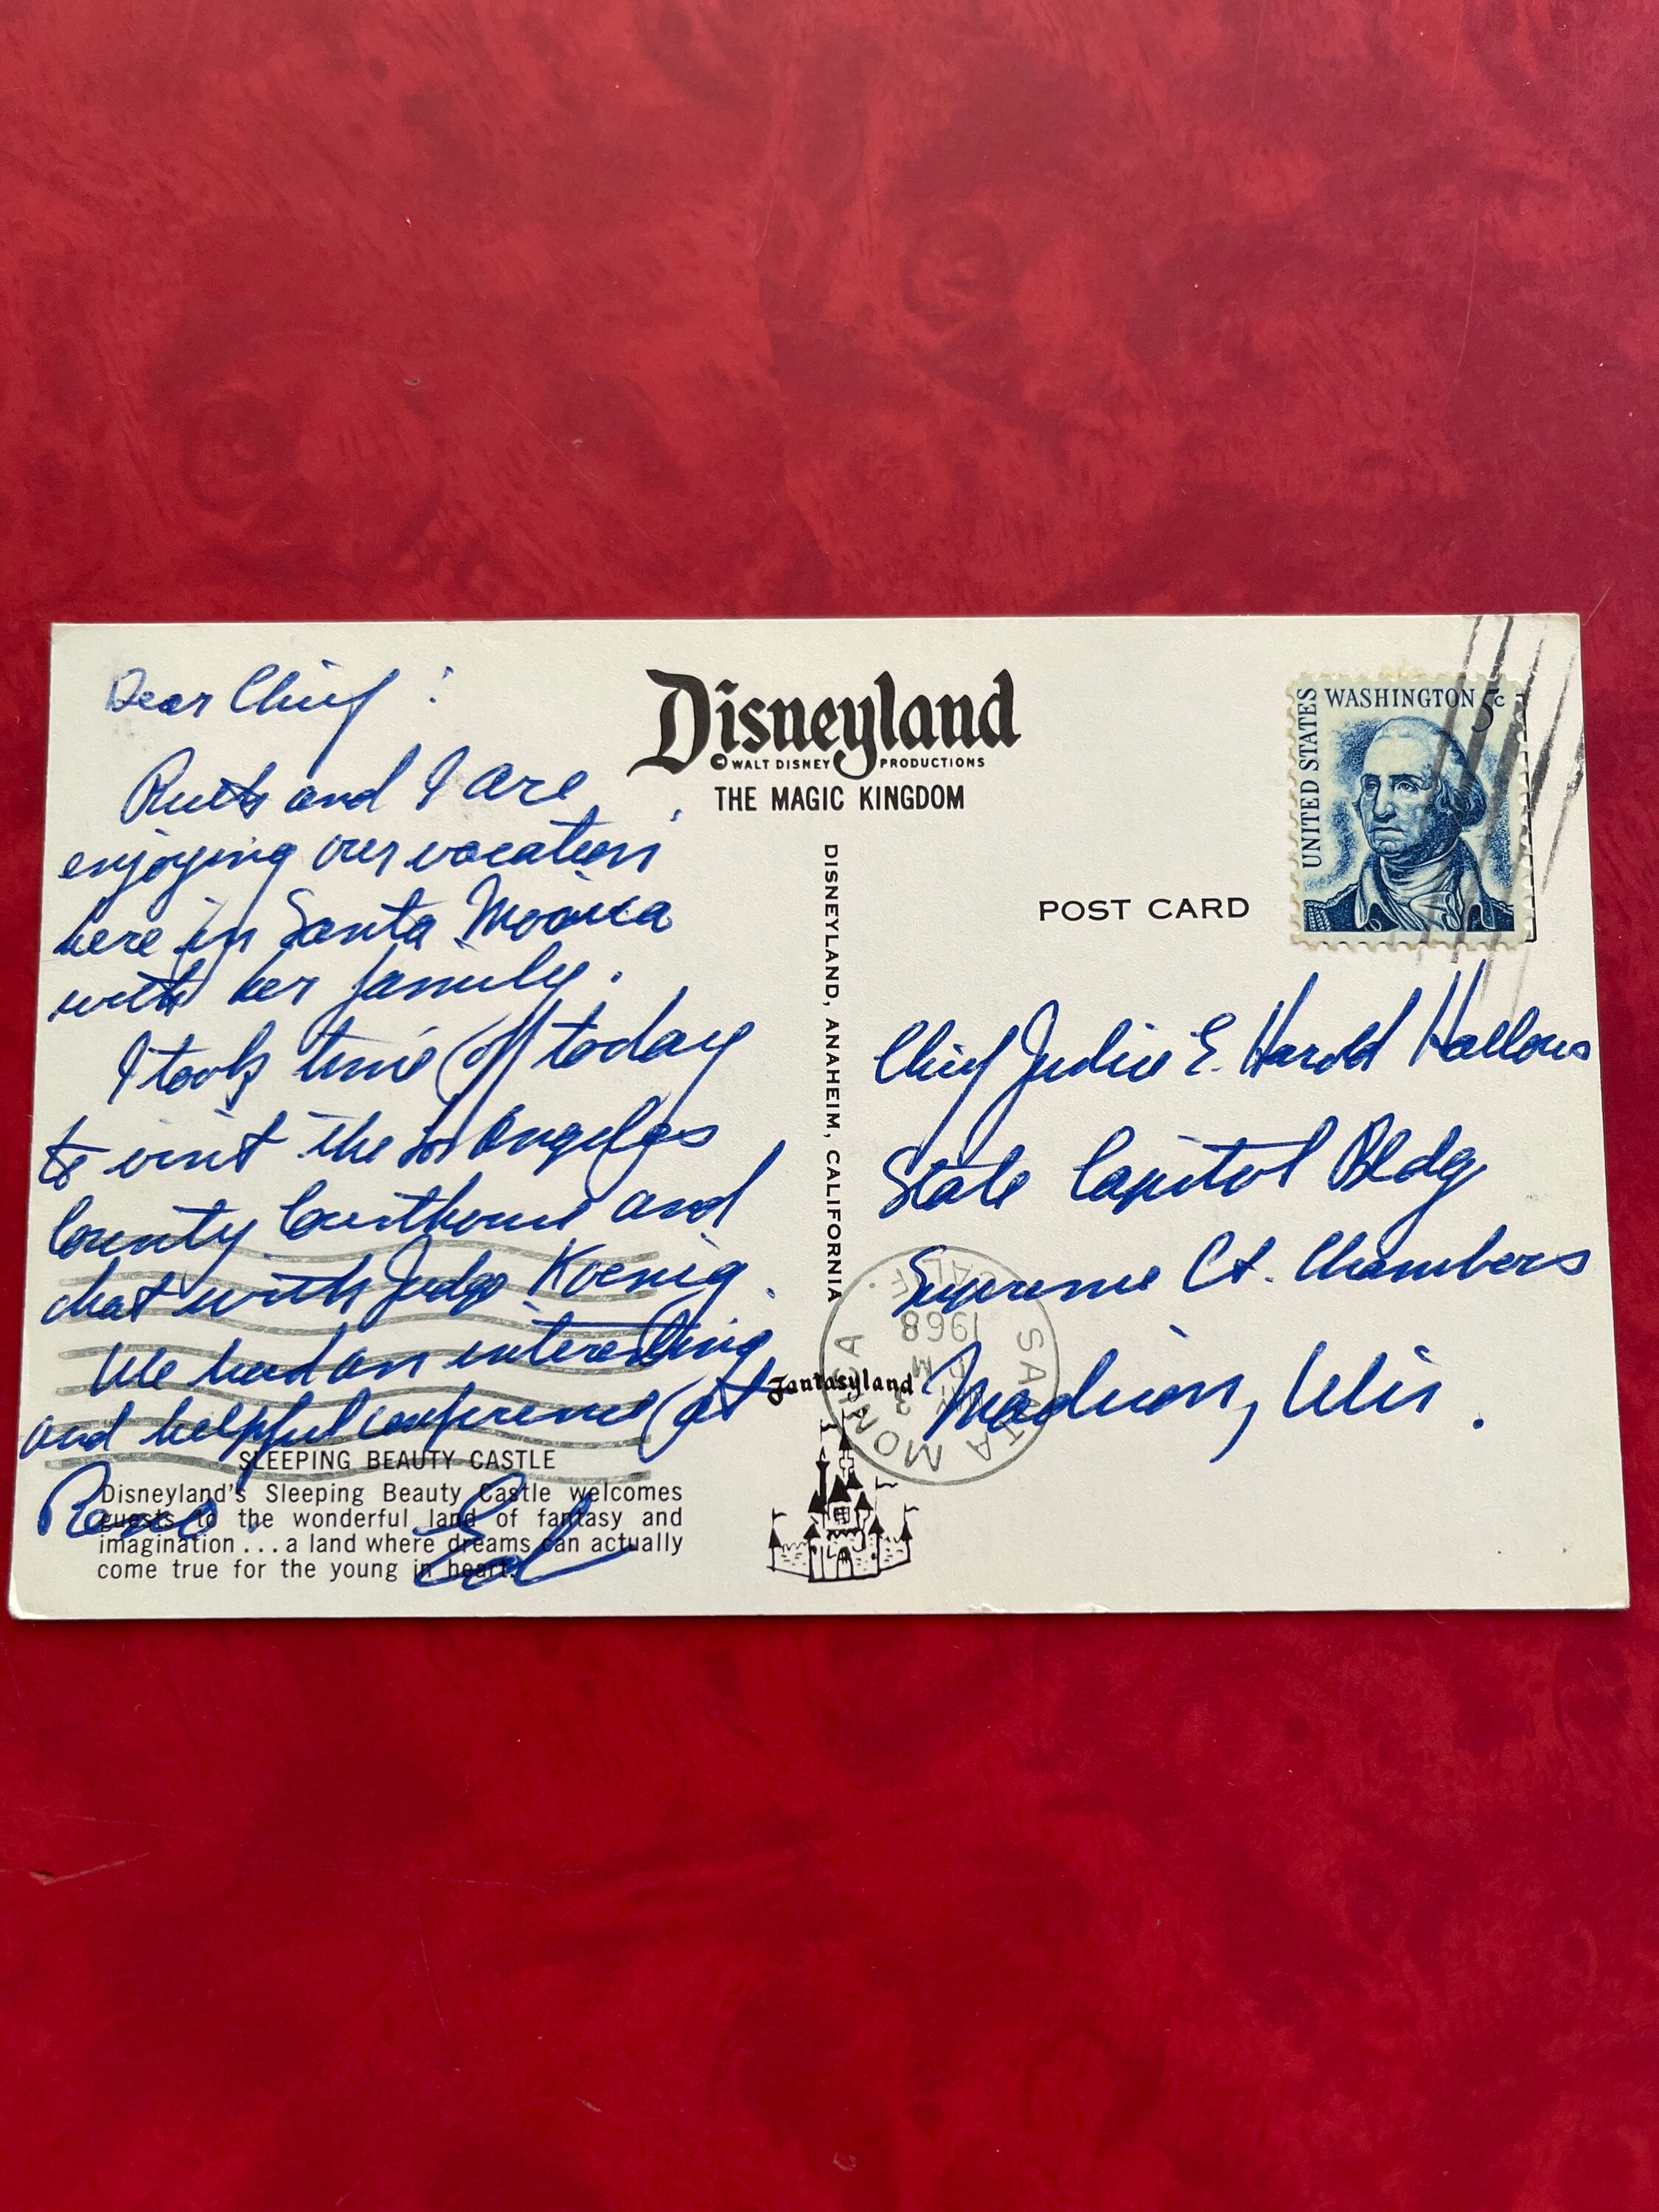 Dear Chief :
Ruth and I are
enjoying our vacation
here in Santa Monica
with her family.
I took time off today
to visit the Los Angeles
County Courthouse and
chat with Judge Koenig.
We had an interesting
and helpful conference at
Reno.
Ed
SLEEPING BEAUTY CASTLE
Disneyland's Sleeping Beauty Castle welcomes
guests to the wonderful land of fantasy and
imagination...a land where dreams can actually
come true for the young in heart.
Disneyland
© WALT DISNEY PRODUCTIONS
THE MAGIC KINGDOM
DISNEYLAND, ANAHEIM, CALIFORNIA
Fantasyland
POST CARD
UNITED STATES
WASHINGTON 5c
Chief Justice E. Harold Hallows
State Capitol Bldg
Supreme Ct. Chambers
Madison, Wis.
SANTA MONICA
CALIF.
PM
1968